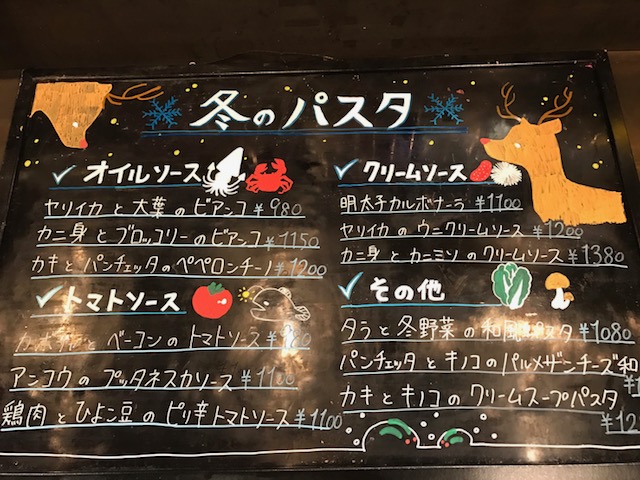 冬のパスタ
オイルソース
ヤリイカと大葉のビアンコ ¥980
カニ身とブロッコリーのビアンコ ¥1150
カキとパンチェッタのペペロンチーノ ¥1200
トマトソース
ベーコンのトマトソース
アンコウのプッタネスカソース ¥1100
鶏肉とひよこ豆のピリ辛トマトソース ¥1100
クリームソース
明太子カルボナーラ ¥1100
ヤリイカのウニクリームソース ¥1200
カニ身とカニミソのクリームソース ¥1380
その他
タラと冬野菜の和風 ¥1080
パンチェッタとキノコのパルメザンチーズ和
カキとキノコのクリームスープパスタ
¥12